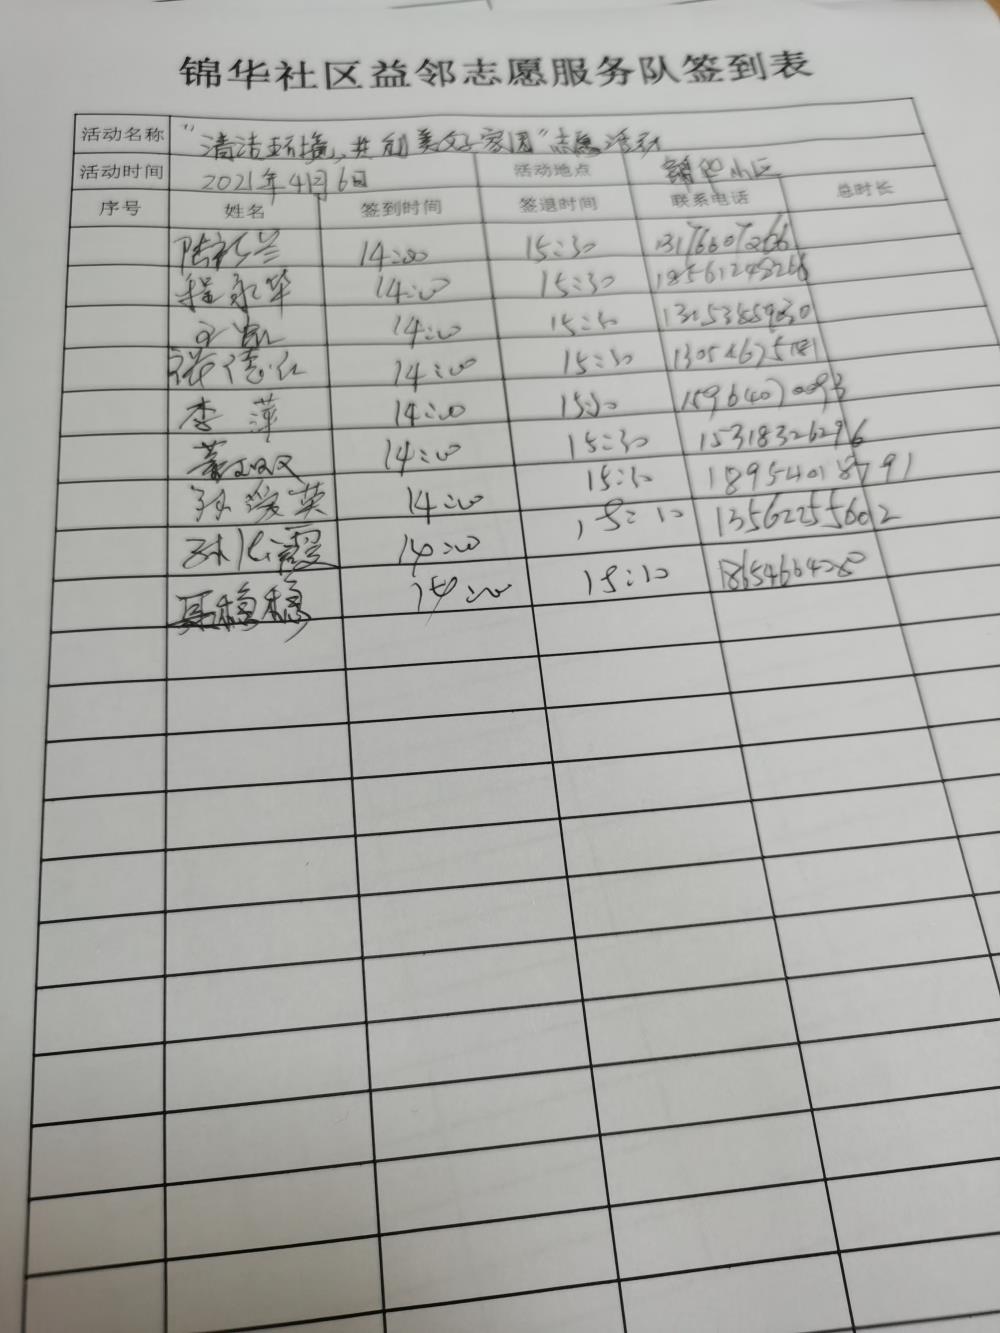 锦华社区益邻志愿服务队签到表
活动名称 "清洁环境,共创美好家园"志愿活动
活动时间 2021年4月6日 活动地点 锦华小区
序号 姓名 签到时间 签退时间 联系电话 总时长
14:00 15:30 13176607266
程永华 14:00 15:30 18561248266
14:00 15:30
张德仁 14:00 15:30
李萍 14:00 15:30 15964070093
董双双 14:00 15:30 15318326296
孙爱英 14:00 15:30 18954018791
孙化霞 14:00 15:30 13562255602
聂稳稳 14:00 15:30 18654664280